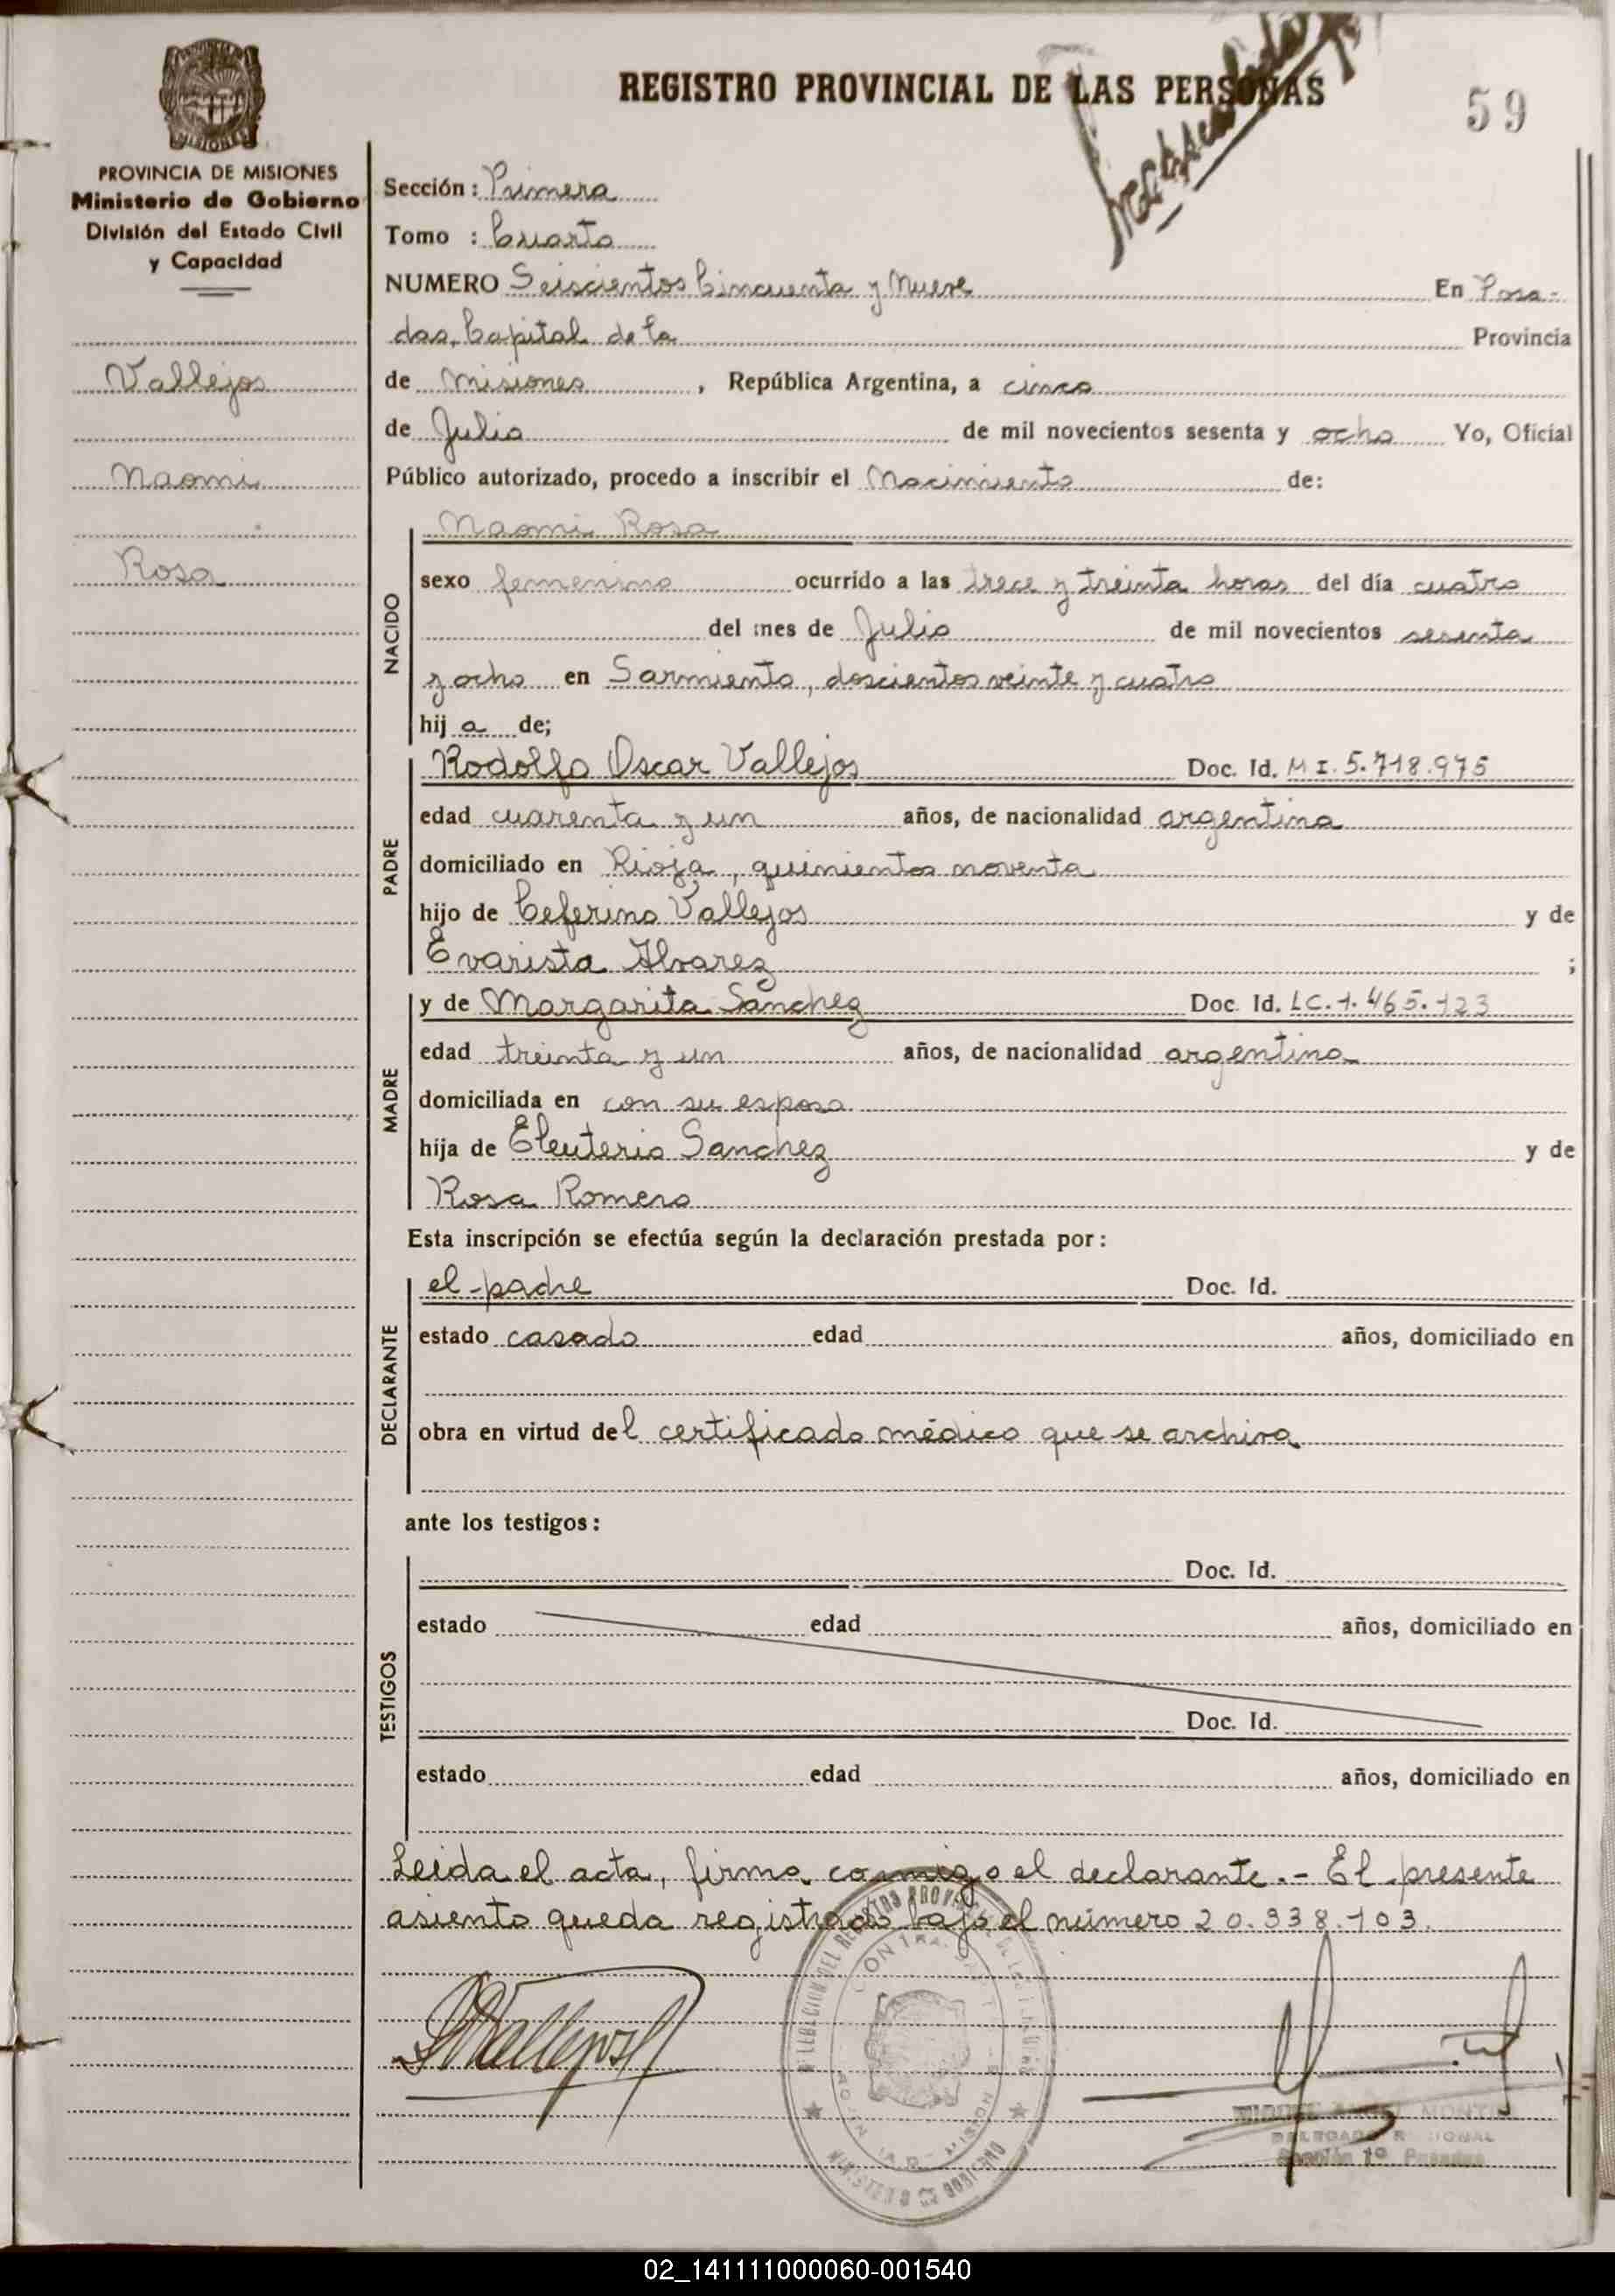 REGISTRO PROVINCIAL DE LAS PERSONAS
59
PROVINCIA DE MISIONES
Ministerio de Gobierno
División del Estado Civil
y Capacidad
Vallejos
Naomi
Rosa
Sección: Primera
Tomo : Cuarto
NUMERO Seiscientos Cincuenta y Nueve En Posa-
das, Capital de la Provincia
de Misiones, República Argentina, a cinco
de Julio de mil novecientos sesenta y ocho Yo, Oficial
Público autorizado, procedo a inscribir el Nacimiento de:
NACIDO
Naomi Rosa
sexo femenino ocurrido a las trece y treinta horas del día cuatro
del mes de Julio de mil novecientos sesenta
y ocho en Sarmiento, doscientos veinte y cuatro
hij a de;
PADRE
Rodolfo Oscar Vallejos Doc. Id. M I. 5.718.975
edad cuarenta y un años, de nacionalidad argentina
domiciliado en Rioja, quinientos noventa
hijo de Ceferino Vallejos y de
Evarista Alvarez ;
MADRE
y de Margarita Sanchez Doc. Id. LC.1.465.123
edad treinta y un años, de nacionalidad argentina
domiciliada en con su esposo
hija de Eleuterio Sanchez y de
Rosa Romero
Esta inscripción se efectúa según la declaración prestada por:
DECLARANTE
el padre Doc. Id.
estado casado edad años, domiciliado en
obra en virtud del certificado médico que se archiva
ante los testigos:
TESTIGOS
Doc. Id.
estado edad años, domiciliado en
Doc. Id.
estado edad años, domiciliado en
Leida el acta, firma conmigo el declarante.- El presente
asiento queda registrado bajo el número 20.338.103.
MINISTERIO DE GOBIERNO
DELEGADO REGIONAL
Sección 1ª Posadas
02_141111000060-001540